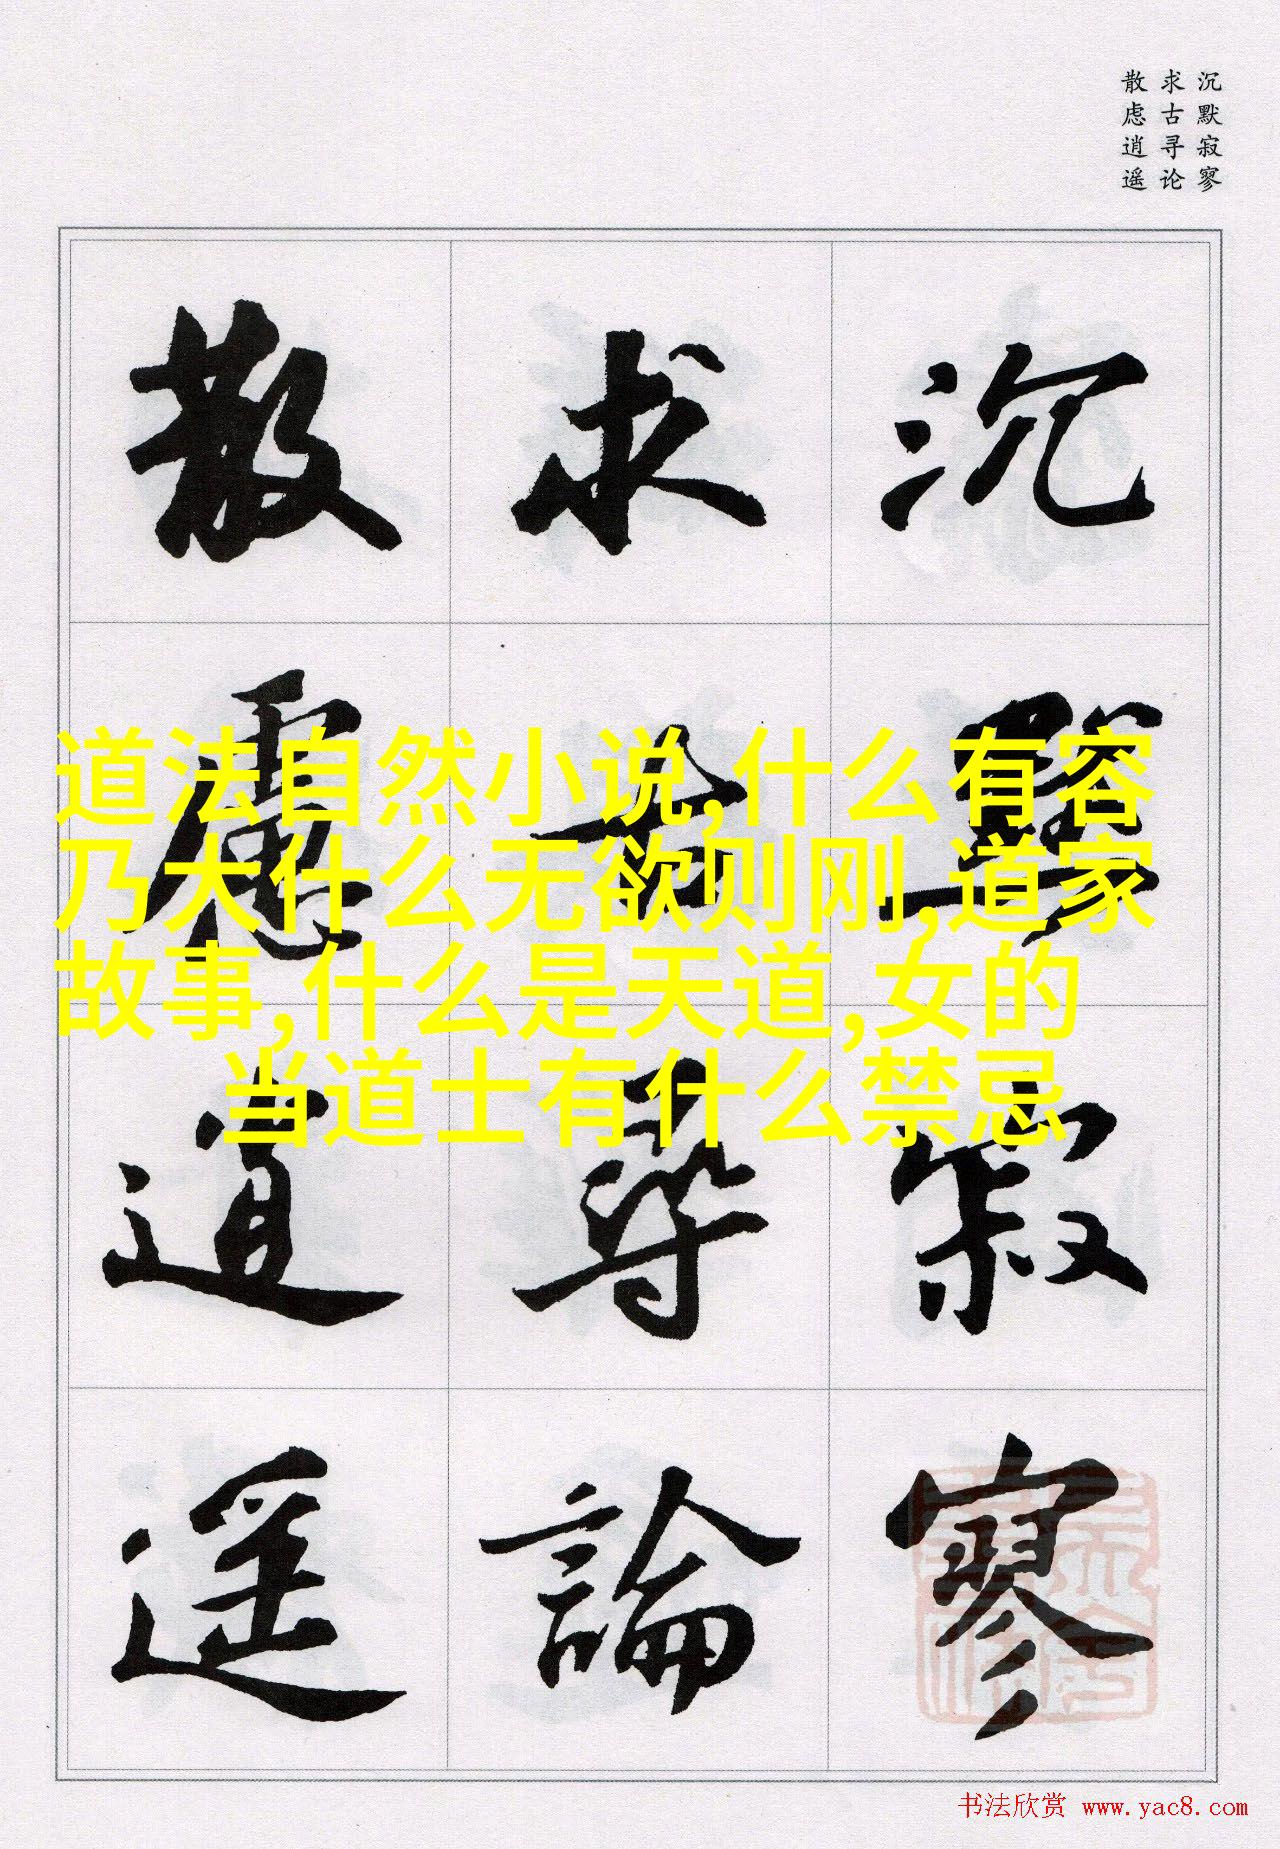 沉默寂寥
求古寻论
散虑逍遥
沉默寂寥
求古尋論
散慮逍遥
道法自然小说,什么有容
乃大什么无欲则刚,道家
故事,什么是天道,女的
当道士有什么禁忌
书法欣赏 www.yac8.com